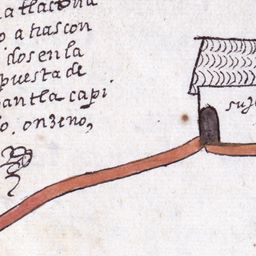 o atrascon
dos en la
puesta de
pantla capi
lo. onzeno,
suj